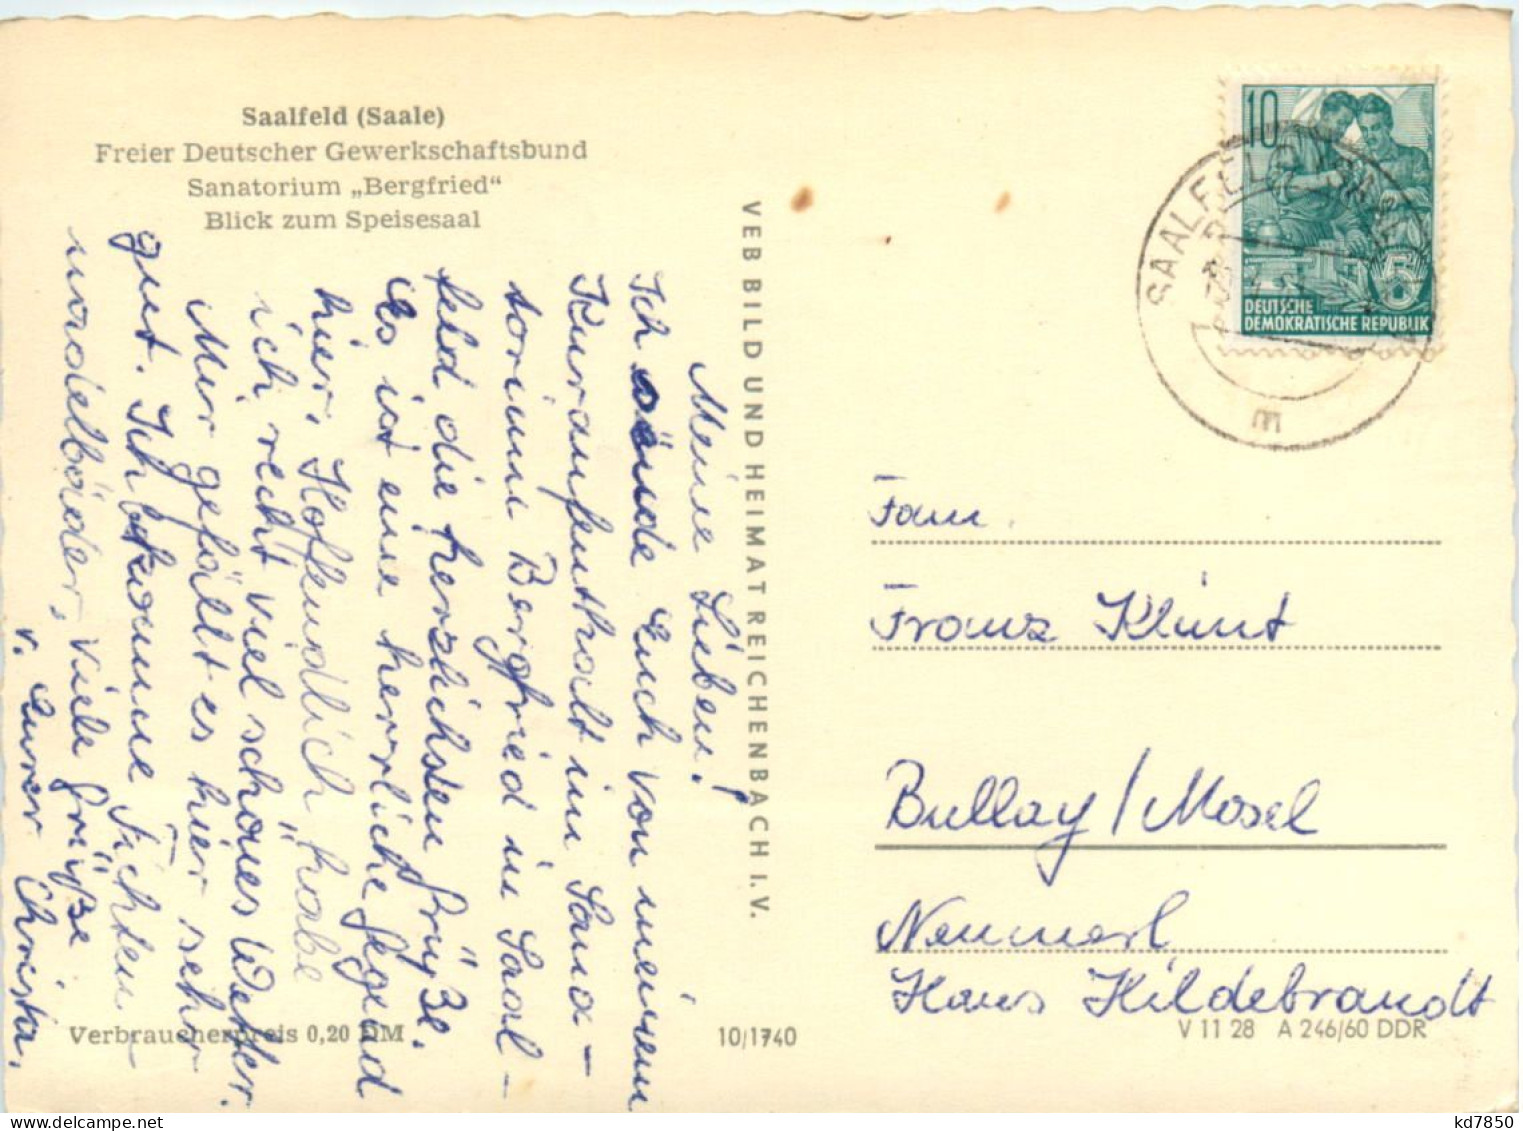 Saalfeld (Saale)
Freier Deutscher Gewerkschaftsbund
Sanatorium „Bergfried“
Blick zum Speisesaal
Meine Lieben!
Ich sende Euch von meinem
Kuraufenthalt im Sana-
torium Bergfried in Saal-
feld die herzlichsten Grüße.
Es ist eine herrliche Gegend
hier. Hoffendlich habe
ich recht viel schönes Wetter.
Mir gefällt es hier sehr
gut. Ich bekomme Fichten-
nadelbäder, Viele Grüße
v. Eurer Christa.
Verbraucherpreis 0,20 DM
VEB BILD UND HEIMAT REICHENBACH I.V.
10/1740
10
DEUTSCHE
DEMOKRATISCHE REPUBLIK
5
SAALFELD (SAALE)
m
Fam.
Franz Klint
Bullay / Mosel
Hans Hildebrandt
V 11 28 A 246/60 DDR
kd7850